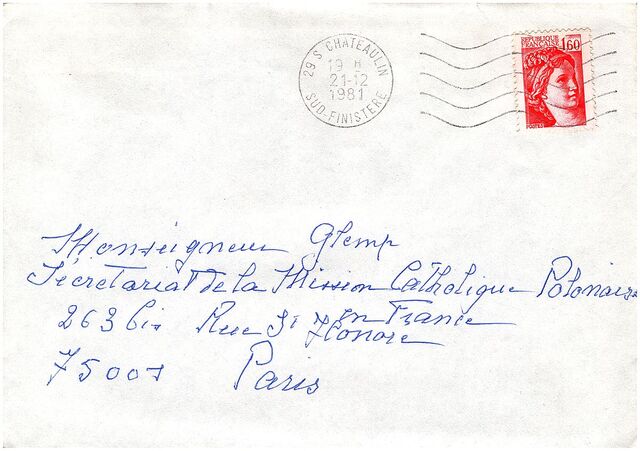 29 S CHATEAULIN
19 H
21-12
1981
SUD-FINISTERE
REPUBLIQUE
FRANÇAISE
1,60
POSTES
Monseigneur Glemp
Sécretariat de la Mission Catholique Polonaise
en France
263 bis Rue St Honoré
75001 Paris